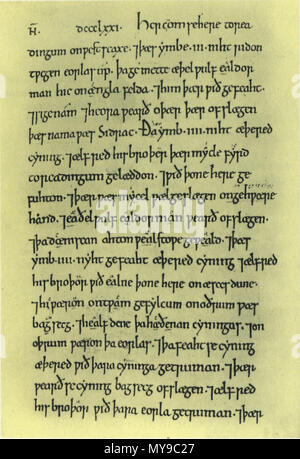 AN. DCCCLXXI. Her com se here to rea
dingum on ƿestseaxe. ⁊ þæs ymbe .iii. niht ridon
tƿegen eorlas up. þa gemette æþelƿulf ealdor
man hie on engla felda. ⁊ him þær ƿið gefeaht.
⁊ sige nam. ⁊ heora ƿearð oþer þær ofslægen
þæs nama ƿæs Sidrac. Ða ymb .iiii. niht æþered
cyning. ⁊ ælfred his broþer þær mycle fyrd
to readingum gelæddon. ⁊ ƿið þone here ge
fuhton. ⁊ þær ƿæs mycel ƿælgeslægen on gehƿæþere
hand. ⁊ eaðelƿulf ealdorman ƿearð ofslægen.
⁊ þa deniscan ahton ƿælstoƿe geƿeald. ⁊ þæs
ymb .iiii. niht gefeaht æþered cyning ⁊ ælfred
his broþor ƿið ealne þone here on æscesdune.
⁊ hi ƿæron on tƿam gefylcum on oðrum ƿæs
bagsecg. ⁊ healfdene þa hæðenan cyningas. ⁊ on
oþrum ƿæron þa eorlas. ⁊ þa feaht se cyning
æþered ƿið þara cyninga getruman. ⁊ þær
ƿearð se cyning bagsecg ofslægen. ⁊ ælfred
his broþor ƿið þara eorla getruman. ⁊ þær
alamy
alamy
Image ID: MY9C27
www.alamy.com